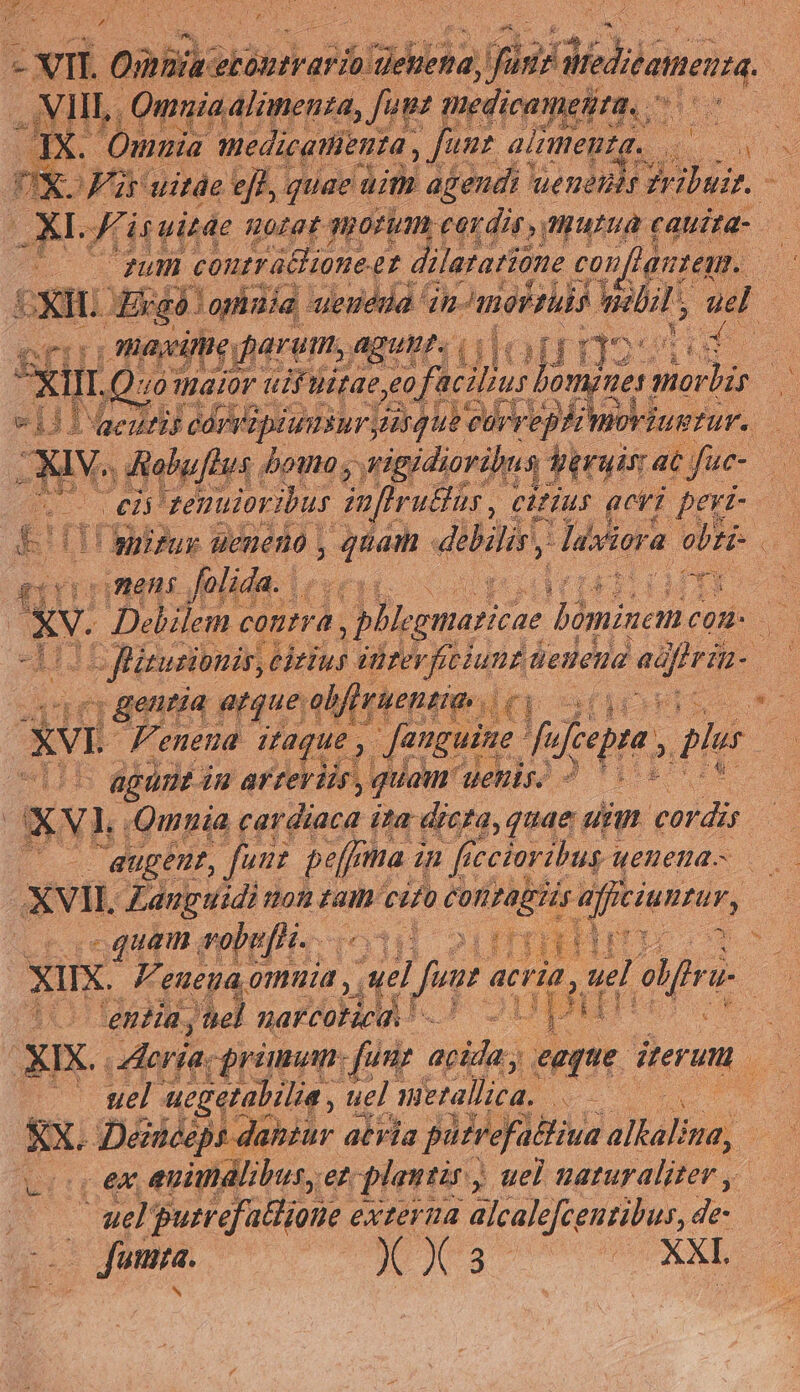 VII. Omnia econtrario uenena, ſunt medicamenta.
VIII. Omnia alimenta, ſunt medicamenta.
IX. Omnia medicamenta, ſunt alimenta.
X. Vis uitae eſt, quae uim agendi uenenis tribuit.
XI. Vis uitae notat motum cordis, mutua cauita-
tum contractione et dilatatione conſtantem.
XII. Ergo omnia uenena in mortuis nihil, uel
maxime parum, agunt.
XIII. Quo maior uis uitae, eo facilius homines morbis
acutis corripiuntur iisque correpti moriuntur.
XIV. Robuſtus homo, rigidioribus neruis ac ſuc-
cis tenuioribus inſtructus, citius acri peri-
mitur ueneno, quam debilis, laxiora obti-
nens ſolida.
XV. Debilem contra, phlegmaticae hominem con-
ſtitutionis, citius interficiunt uenena adſtrin-
gentia atque obſtruentia.
XVI. Venena itaque, ſanguine ſuſcepta, plus
agunt in arteriis, quam uenis.
XVI. Omnia cardiaca ita dicta, quae uim cordis
augent, ſunt peſſima in ſiccioribus uenena.
XVII. Languidi non tam cito contagiis afficiuntur,
quam robuſti.
XIIX. Venena omnia, uel ſunt acria, uel obſtru-
entia, uel narcotica.
XIX. Acria primum ſunt acida, eaque iterum
uel uegetabilia, uel metallica.
XX. Deinceps dantur acria putrefactiua alkalina,
ex animalibus, et plantis, uel naturaliter,
uel putrefactione externa alcaleſcentibus, de-
ſumta.
)( )( 3 XXI.